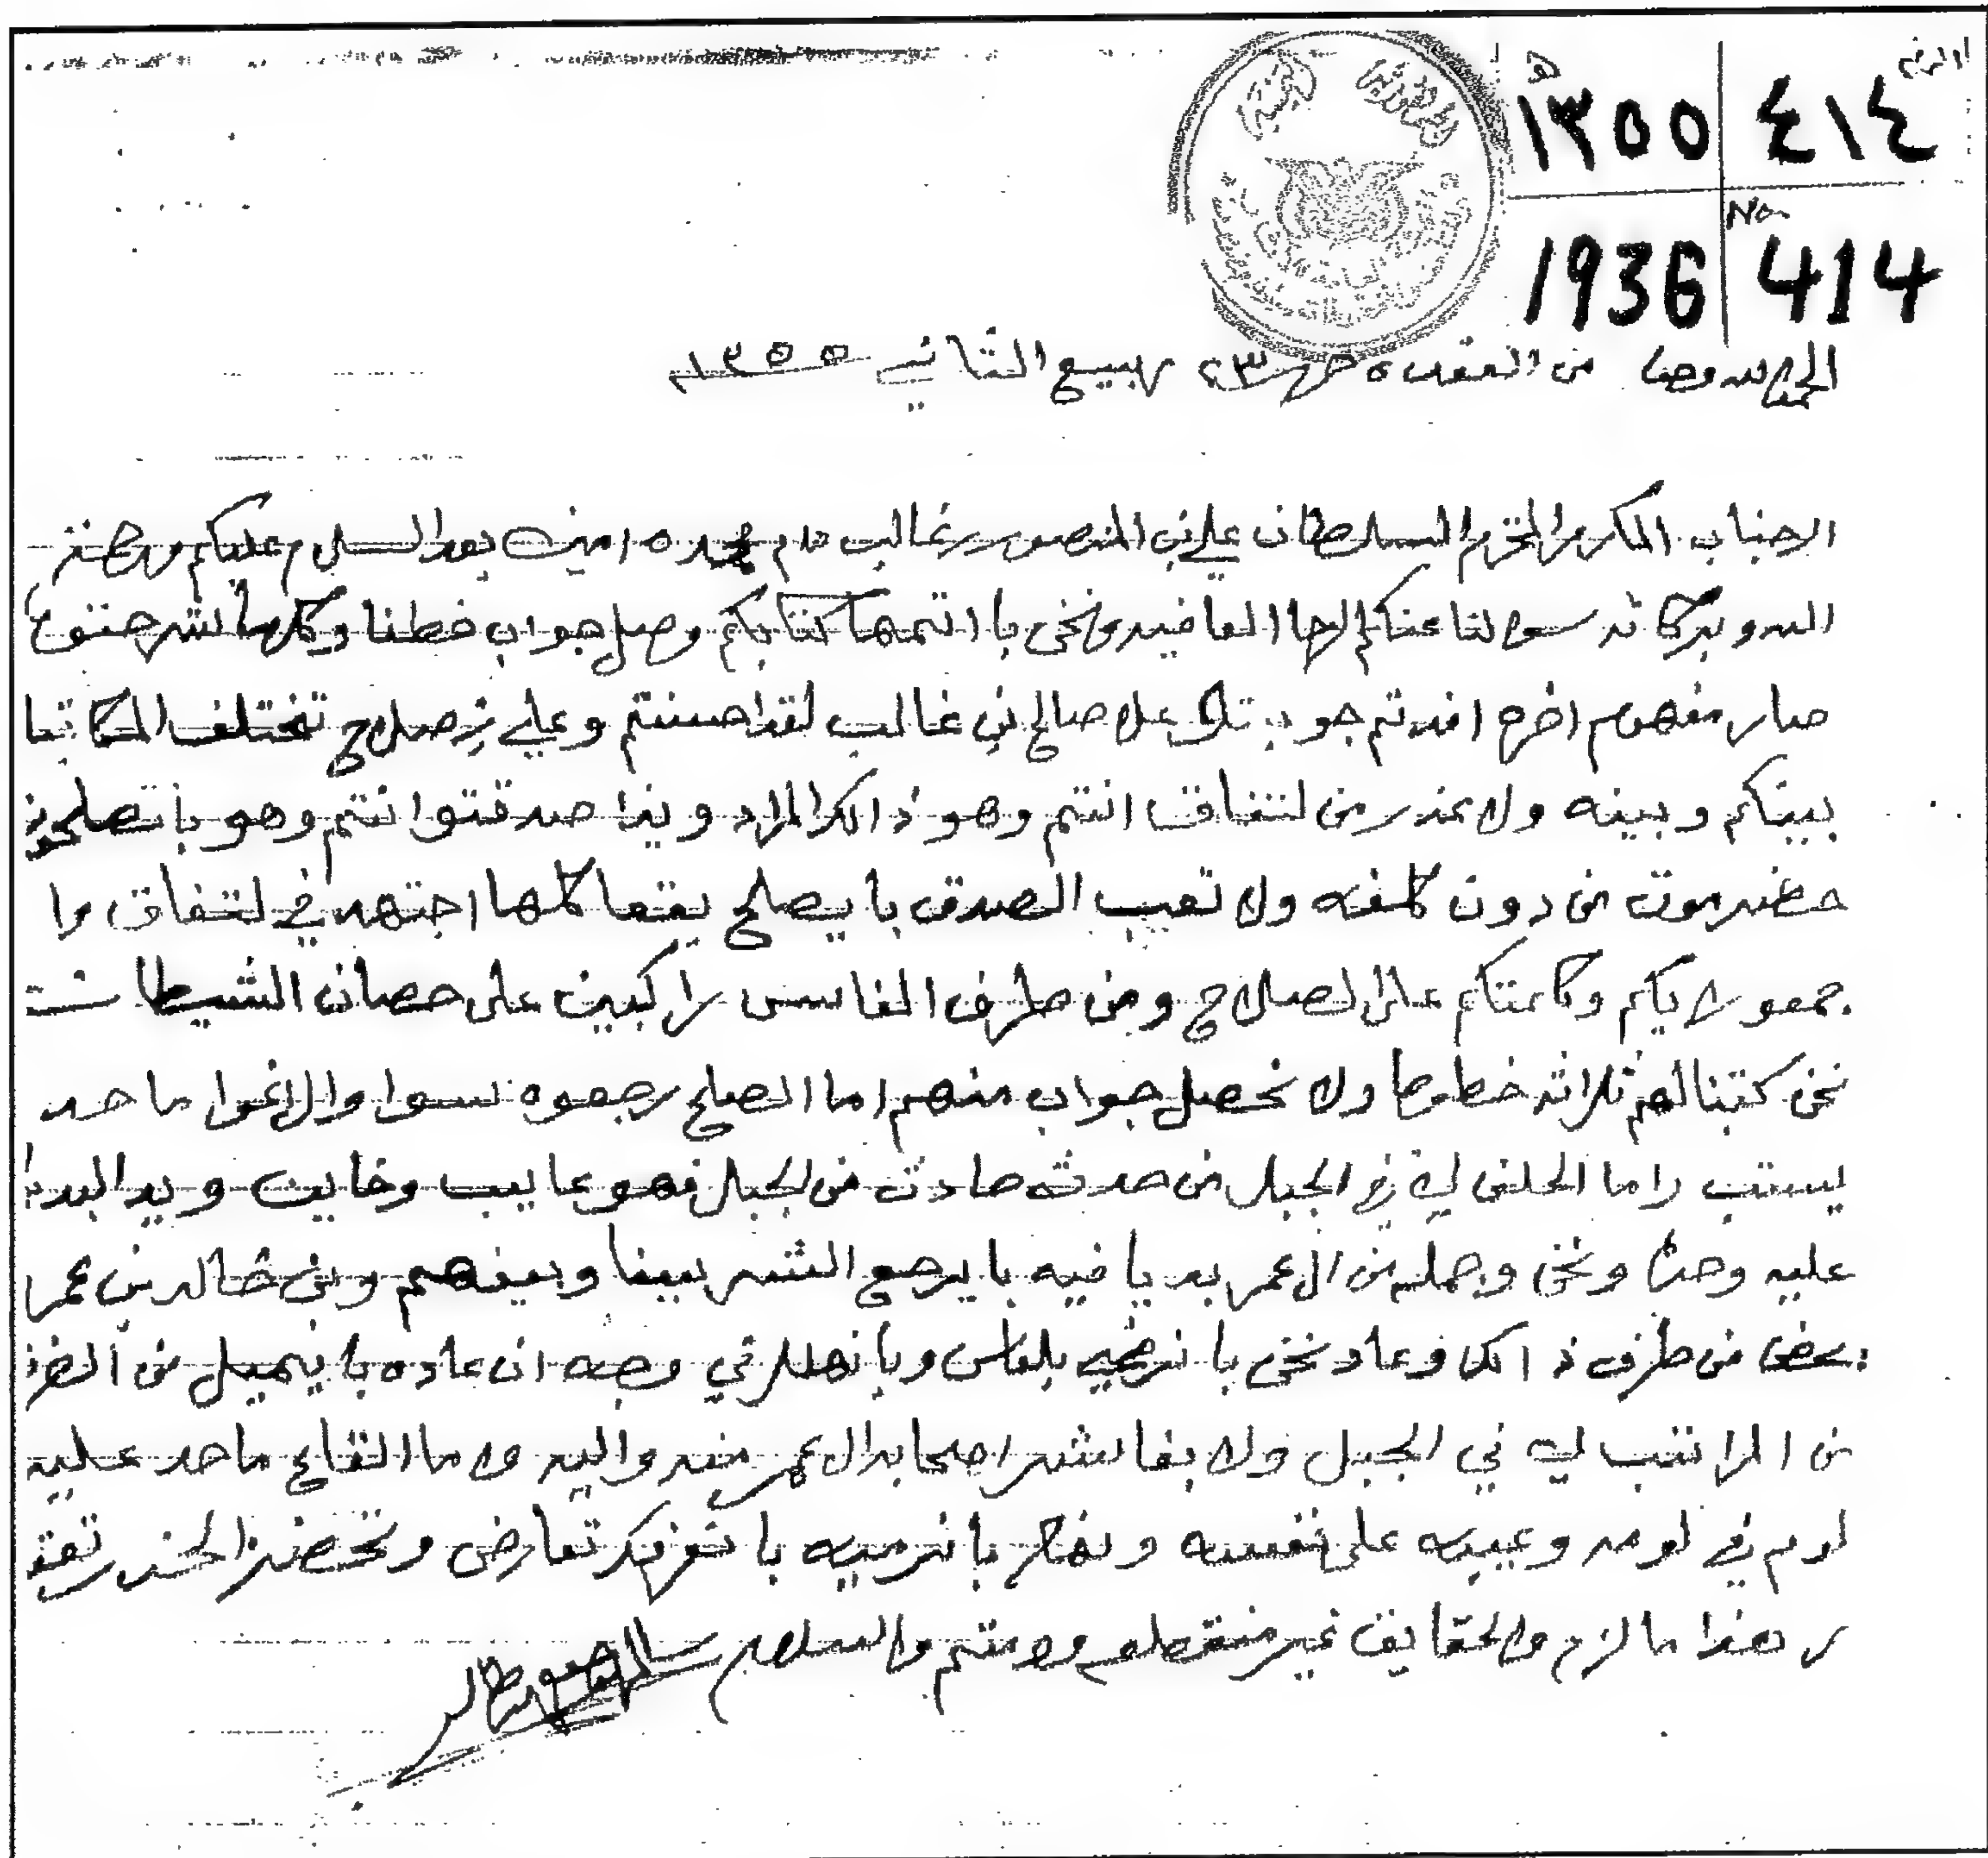 ١٣٥٥ هـ ٤١٤
No
1936 414
الحمد لله وحده من العقده حرر ٢٣ ربيع الثاني ١٣٥٥
الجناب المكرم المحترم السلطان علي بن المنصور بن غالب دام مجده امين بعد السلام عليكم ورحمة
الله وبركاته سوالنا عنكم الرجا العافيه ونحن با اتمها كتابكم وصل جواب خطنا وكلما شرحتوه
صار مفهوم افدتم جوبتك على صالح بن غالب لقد احسنتم وعلي بن صلاح تختلف المكاتبا
بينكم وبينه ولا عذر من لتفاق انتم وهو ذالك المراد ويذا صدقتوا انتم وهو باتصلحون
حظرموت من دون كلفه ولا تعب الصدق با يصلح بقعا كلها اجتهد في لتفاق وا
جمعو رايكم وكلمتكم على الصلاح ومن طرف الفاس راكبين على حصان الشيطان
نحن كتبنا لهم ثلاثه خطوط ولا نحصل جواب منهم اما الصلح رجعوه سوا والا غوا ماحد
يستب واما الحلف لي في الجبل من حدث حادث من الجبل فهو عايب وخاين ويد البدا
عليه وحده ونحن وجمله من ال عمر بديا فيه با يرجع الشر بيننا وبينهم وبن خالد بن عمر
من طرف ذالك وعاد نحن با نرضيه بلناس وبا نهلل في وجهه ان عاده با يميل من
من المراتب لي في الجبل ولا بغا شر اصحابه ال عمر منه واليه ولا ما التاع ماحد عليه
لوم في لومه وعيبه على نفسه با نرميه تعارض
ر هذا ما لزم والحقايق غير منقطعه ودمتم والسلام